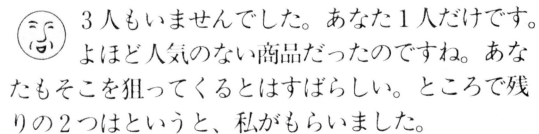 ３人もいませんでした。あなた１人だけです。
よほど人気のない商品だったのですね。あな
たもそこを狙ってくるとはすばらしい。ところで残
りの２つはというと、私がもらいました。